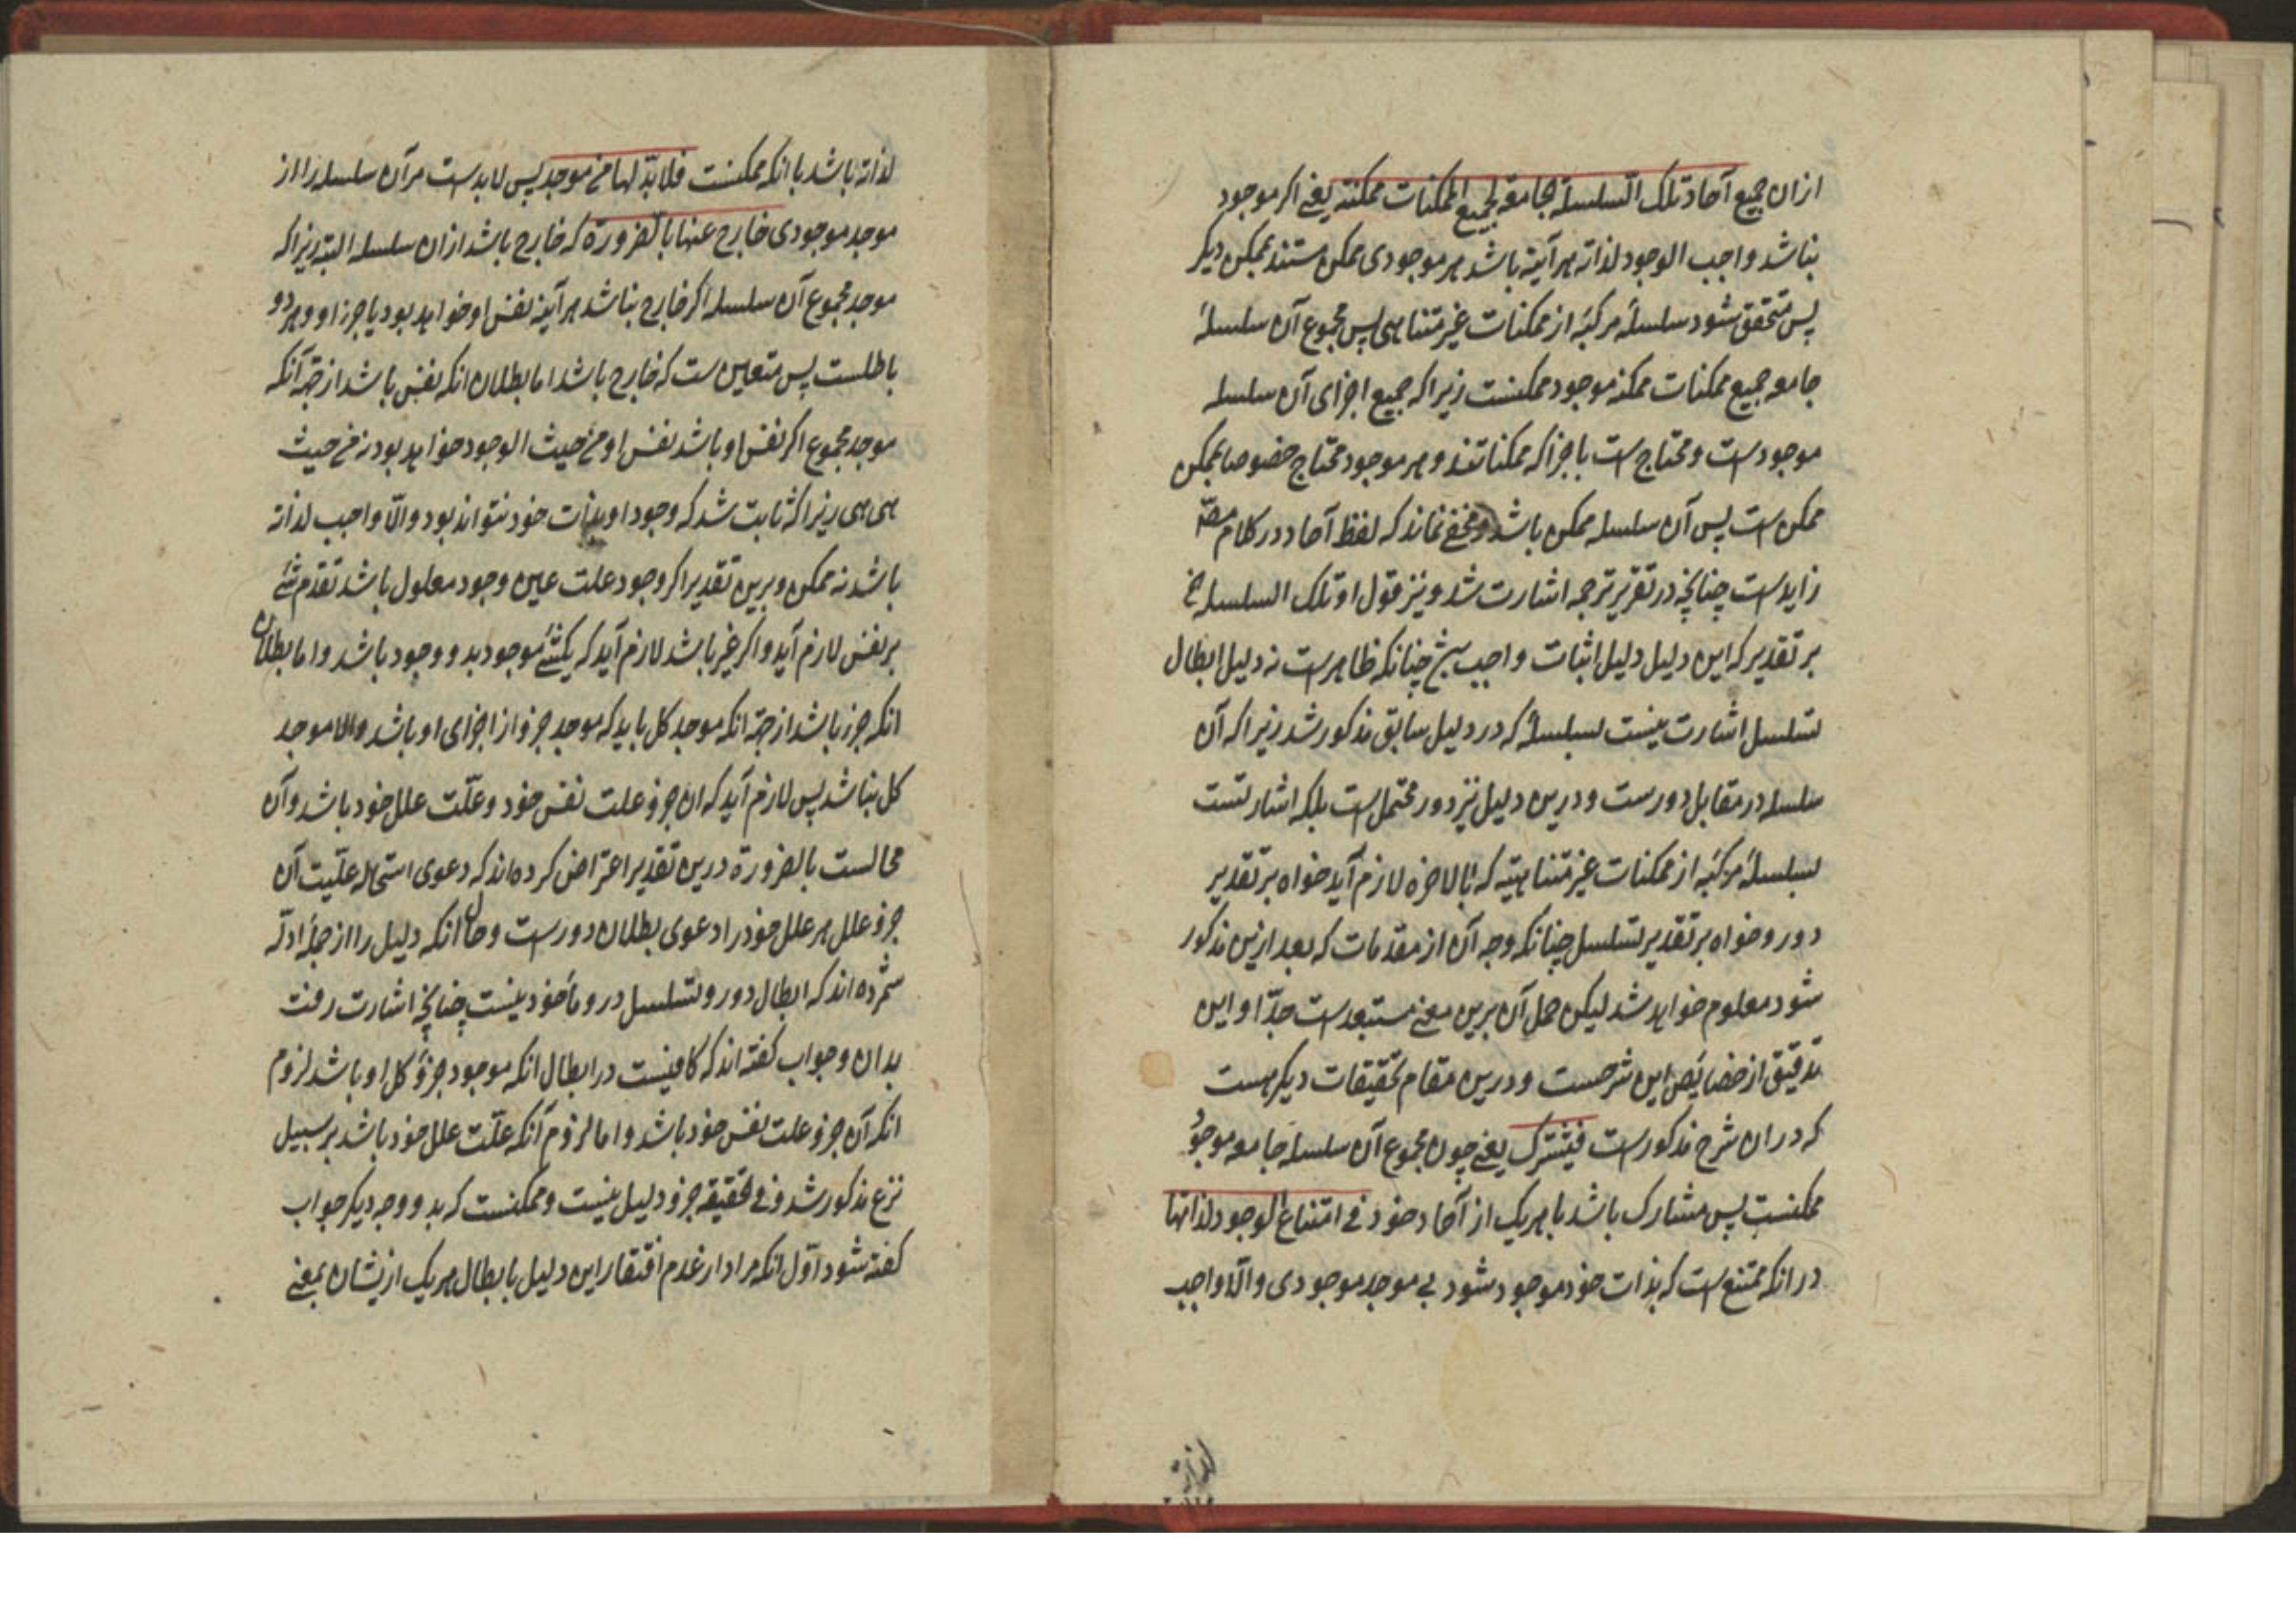 ازان جمیع آحاد تلک السلسلة الجامعة لجمیع الممکنات ممکنة یعنی اکر موجود
نباشد واجب الوجود لذاته هرآینه باشد هر موجودی ممکن مستند بممکن دیکر
پس متحقق شود سلسلهٔ مرکبه از ممکنات غیر متناهی پس مجموع آن سلسلهٔ
جامعه جمیع ممکنات ممکنه موجود ممکنست زیراکه جمیع اجزای آن سلسله
موجودست و محتاج ست باجزا که ممکناتند و هر موجود محتاج خصوصا بممکن
ممکن ست پس آن سلسله ممکن باشد و مخفی نماند که لفظ آحاد در کلام مصّ
زایدست چنانچه در تقریر ترجمه اشارت شد و نیز قول او تلک السلسله الخ
بر تقدیر که این دلیل دلیل اثبات واجب چنانکه ظاهرست نه دلیل ابطال
تسلسل اشارت نیست بسلسلهٔ که در دلیل سابق مذکور شد زیراکه آن
سلسله در مقابل دورست و درین دلیل نیز دور محتمل ست بلکه اشارتست
بسلسلهٔ مرکبه از ممکنات غیر متناهیه که بالاخره لازم آید خواه بر تقدیر
دور و خواه بر تقدیر تسلسل چنانکه وجه آن از مقدمات که بعد ازین مذکور
شود معلوم خواهد شد لیکن حمل آن برین معنی مستبعدست جدّا و این
تدقیق از خصایص این شرحست و درین مقام تحقیقات دیکر هست
که دران شرح مذکورست فیشترک یعنی چون مجموع آن سلسله جامعه موجودُ
ممکنست پس مشارک باشد با هریک از آحاد خود فی امتناع الوجود لذاتها
در انکه ممتنع ست که بذات خود موجود شود بی موجد موجودی و الّا واجب
لذاته
لذاته باشد با انکه ممکنست فلا بدّ لها من موجد پس لابدست مر آن سلسله را از
موجد موجودی خارج عنها بالضرورة که خارج باشد ازان سلسله البته زیراکه
موجد مجموع آن سلسله اکر خارج نباشد هرآینه نفس او خواهد بود یا جزء او و هر دو
باطلست پس متعین ست که خارج باشد اما بطلان انکه نفس باشد از جهة آنکه
موجد مجموع اکر نفس او باشد نفس او من حیث الوجود خواهد بود نه من حیث
هی هی زیراکه ثابت شد که وجود او بذات خود نتواند بود و الّا واجب لذاته
باشد نه ممکن و برین تقدیر اکر وجود علت عین وجود معلول باشد تقدم شئ
بر نفس لازم آید و اکر غیر باشد لازم آید که یکشئ موجود بدو وجود باشد و اما بطلان
انکه جزء باشد از جهة انکه موجد کل باید که موجد جزو از اجزای او باشد و الا موجد
کل نباشد پس لازم آید که ان جزو علت نفس خود و علّت علل خود باشد و آن
محالست بالضرورة درین تقدیر اعتراض کرده اند که دعوی استحاله علیّت آن
جزو علل هر علل خود را دعوی بطلان دورست و حال انکه دلیل را از جمله ادلّه
شمرده اند که ابطال دور و تسلسل درو مأخوذ نیست چنانچه اشارت رفت
بدان و جواب کفته اند که کافیست در ابطال انکه موجود جزؤ کل او باشد لزوم
انکه آن جزو علت نفس خود باشد و اما لزوم آنکه علّت علل خود باشد بر سبیل
مذکور شد و فی الحقیقه جزو دلیل نیست و ممکنست که بدو وجه دیکر جواب
کفته شود اوّل انکه مراد از عدم افتقار این دلیل بابطال هریک ازیشان بمعنی